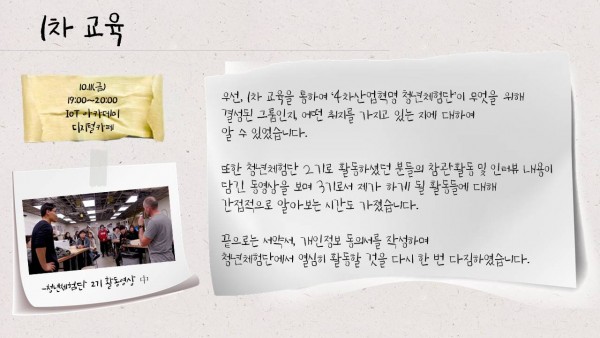 1차 교육
10.11(금)
19:00~20:00
IoT 아카데미
디지털카페
우선, 1차 교육을 통하여 '4차산업혁명 청년체험단'이 무엇을 위해
결성된 그룹인지, 어떤 취지를 가지고 있는 지에 대하여
알 수 있었습니다.
또한 청년체험단 2기로 활동하셨던 분들의 참관활동 및 인터뷰 내용이
담긴 동영상을 보며 3기로서 제가 하게 될 활동들에 대해
간접적으로 알아보는 시간도 가졌습니다.
끝으로는 서약서, 개인정보 동의서를 작성하며
청년체험단에서 열심히 활동할 것을 다시 한 번 다짐하였습니다.
-청년체험단 2기 활동영상 中